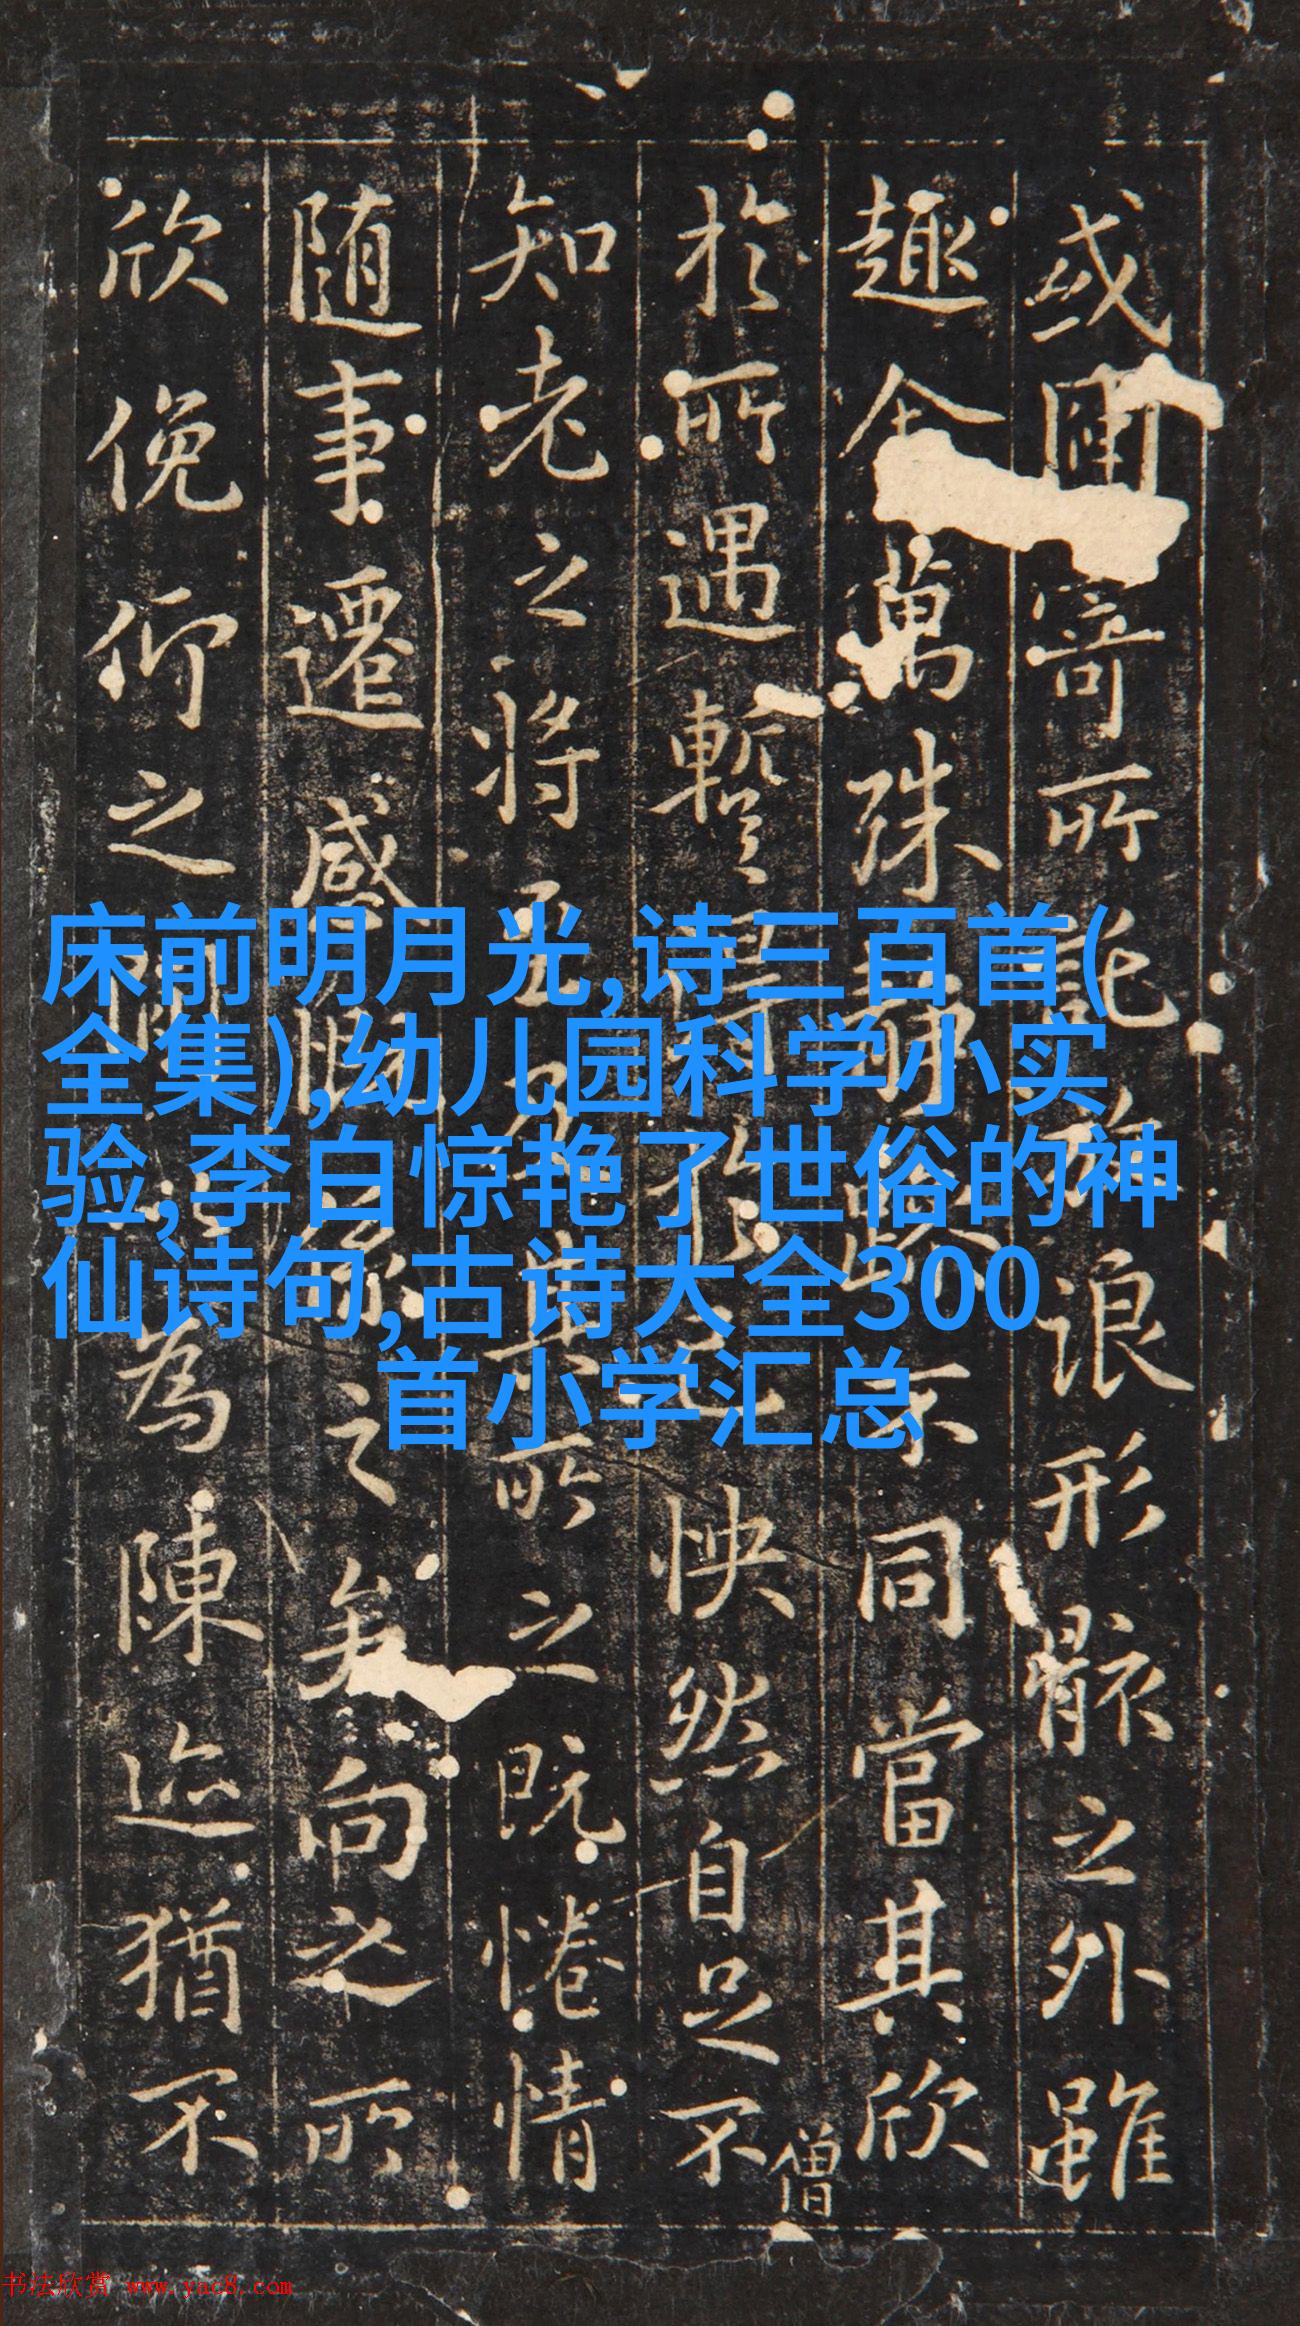 或因寄所託放浪形骸之外雖
趣舍萬殊靜躁不同當其欣
於所遇暫得於己怏然自足不
僧
知老之將至及其所之既惓情
随事遷感慨係之矣向之所
欣俛仰之閒以為陳迹猶不
床前明月光,诗三百首(
全集),幼儿园科学小实
验,李白惊艳了世俗的神
仙诗句,古诗大全300
首小学汇总
书法欣赏 www.yac8.com